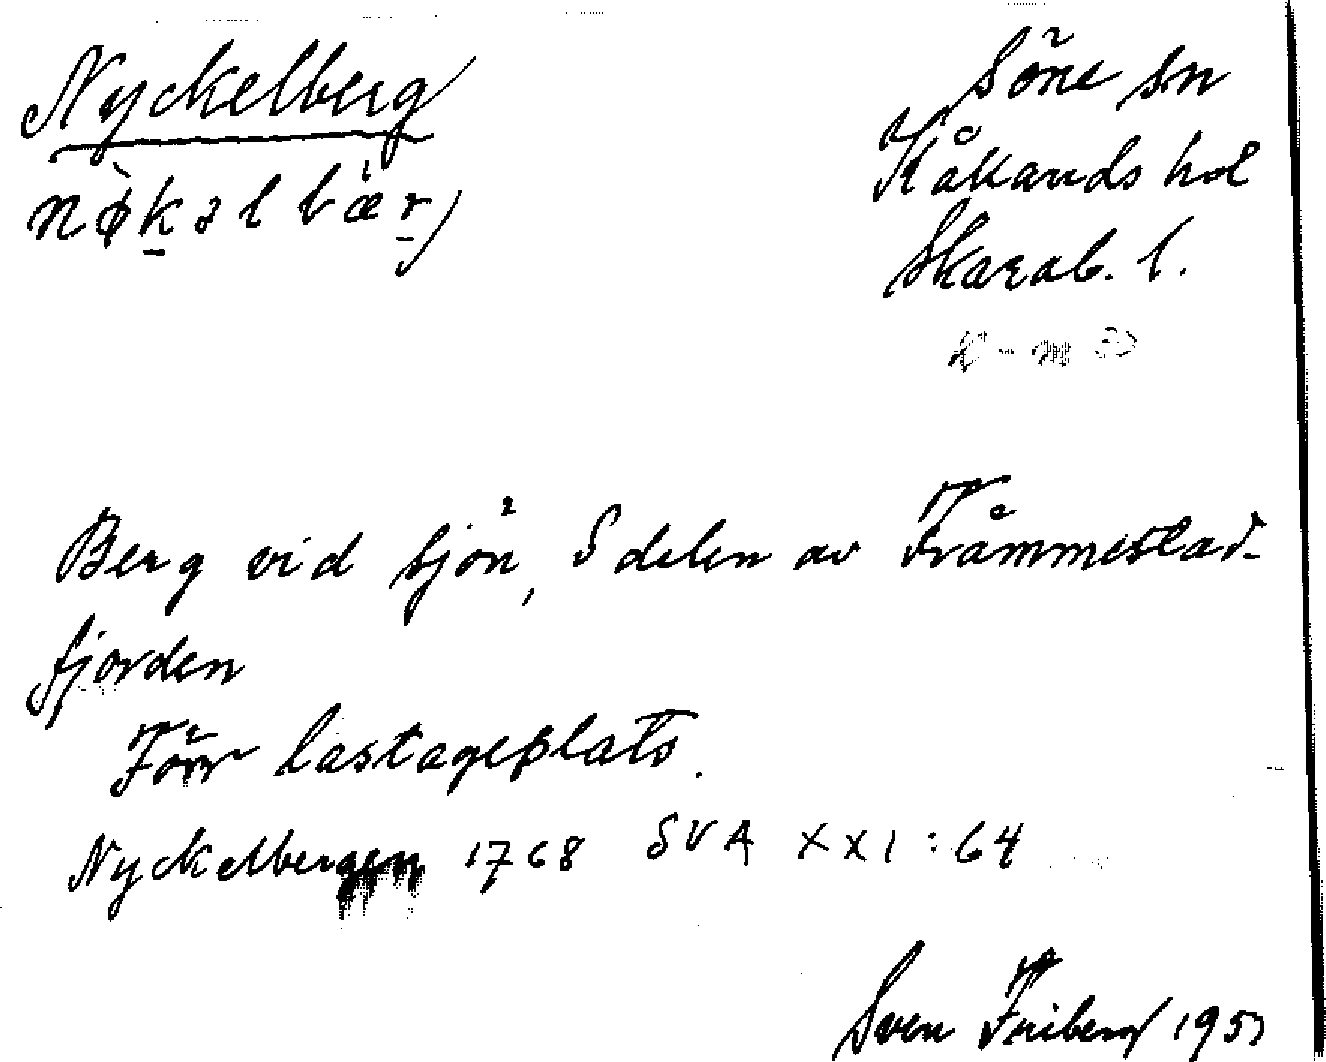 Nyckelberg
Söne sn
Kållands hd
Skarab. l.
Berg vid sjön, S delen av Frammestad-
fjorden
Förr lastageplats.
Nyckelbergen 1768 SVA XXI:64
Sven Friberg